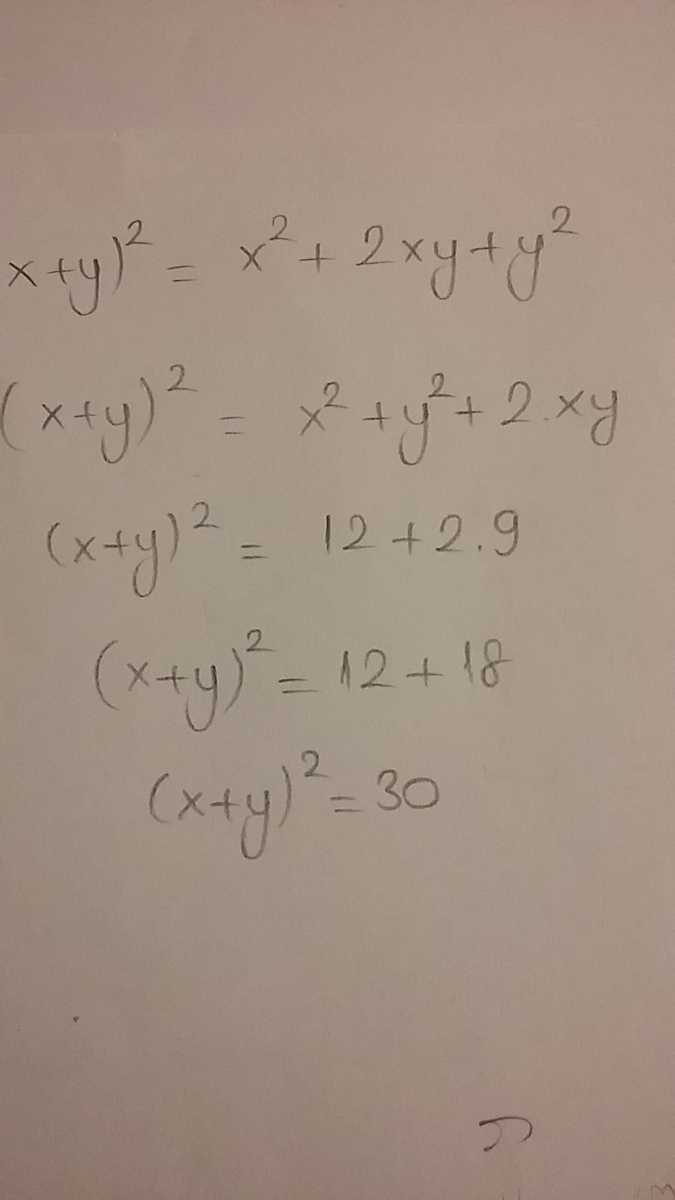 x+y)² = x² + 2xy+y²
(x+y)² = x²+y²+2.xy
(x+y)² = 12+2.9
(x+y)² = 12+18
(x+y)² = 30